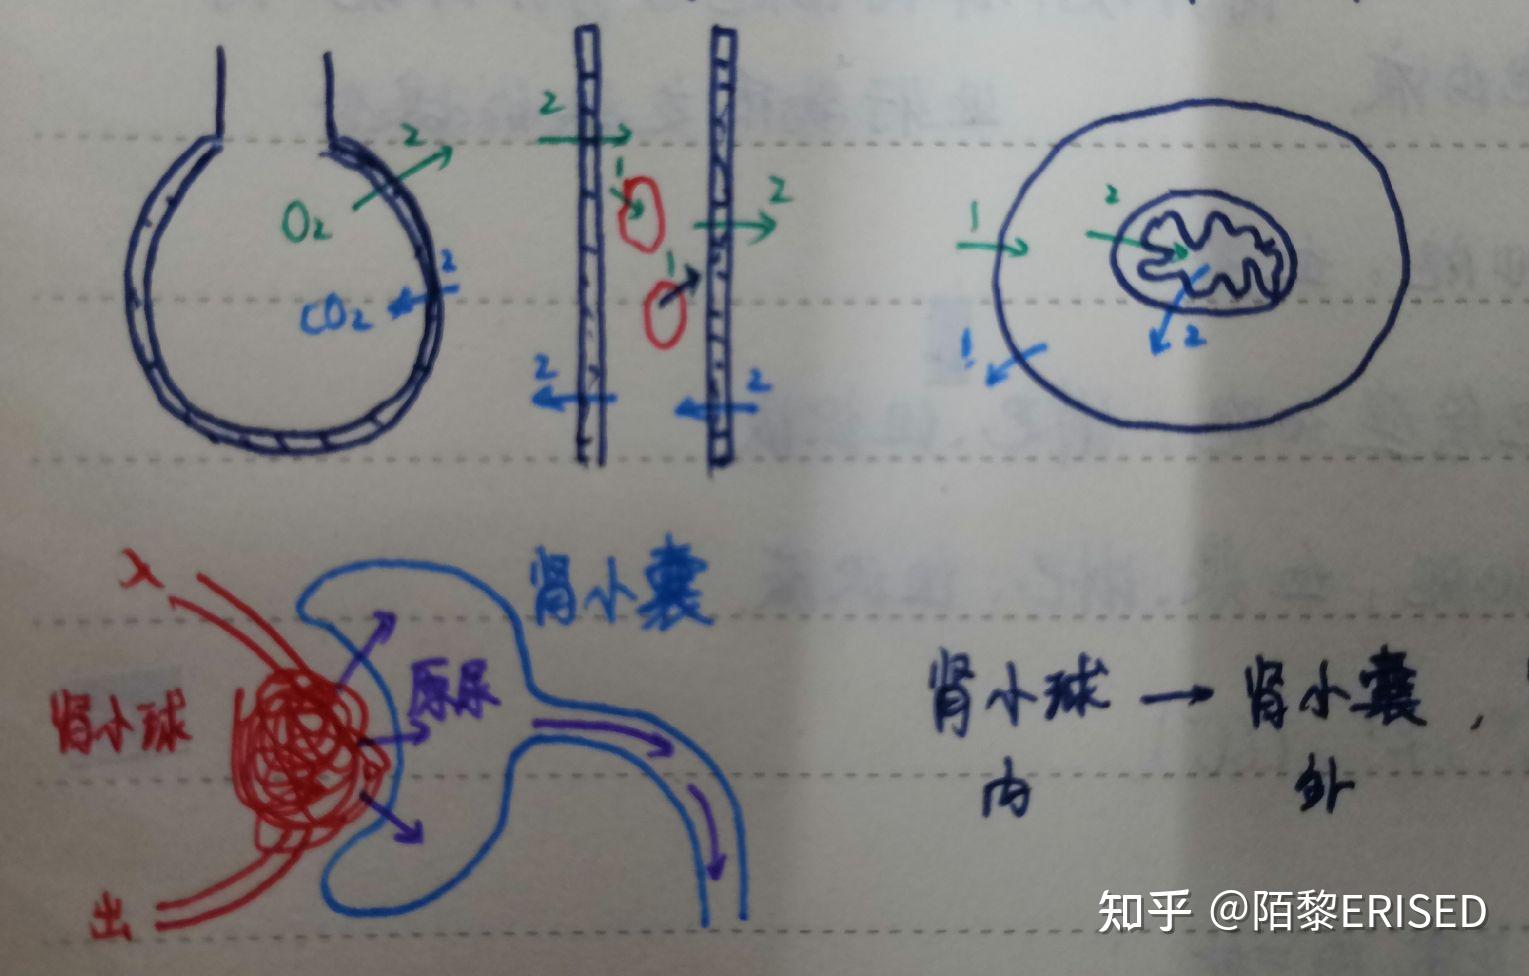 2
O₂
2
CO₂
2
1
1
2
2
2
1
2
1
2
入
肾小囊
肾小球
原尿
出
肾小球 → 肾小囊，
内 外
知乎 @陌黎ERISED